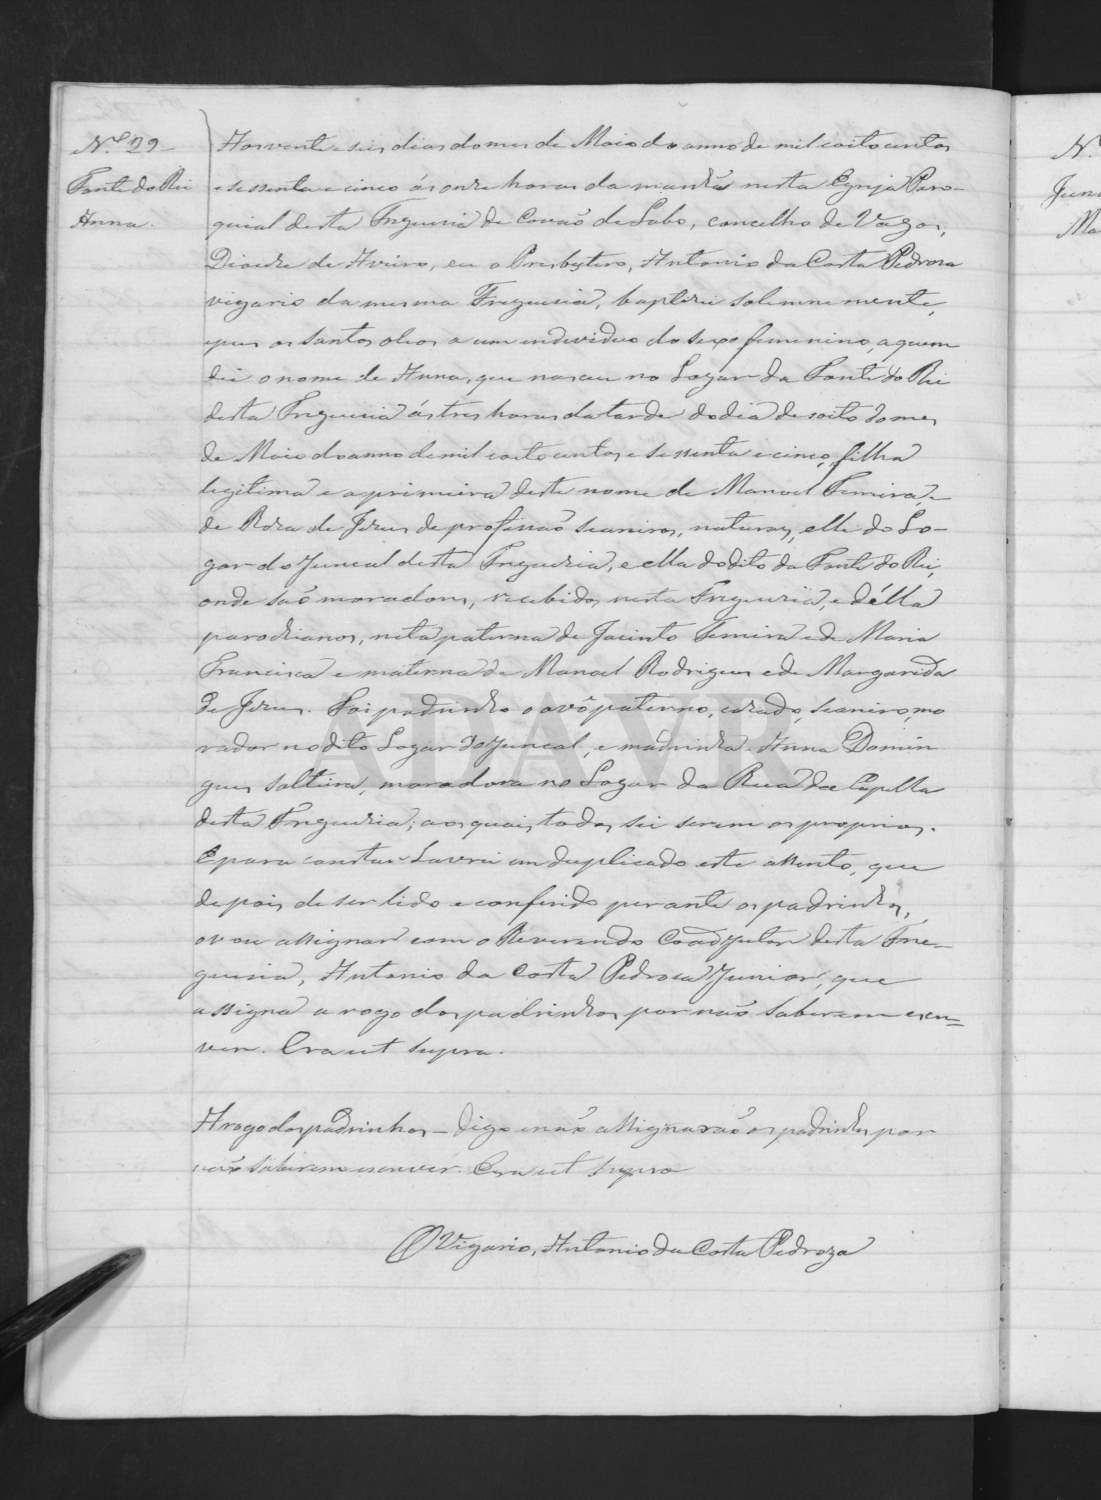 N.º 29
Fonte do Rei
Anna.
Aos vente e seis dias do mes de Maio do anno de mil oito centos
e sessenta e cinco ás onze horas da manhã nesta Egreja Paro-
quial desta Freguesia de Covão de Lobo, concelho de Vagos,
Diocese de Aveiro, eu o Presbytero, Antonio da Costa Pedrosa
vigario da mesma Freguesia, baptizei solemne mente,
e pus os santos oleos a um individuo do sexo femenino, a quem
dei o nome de Anna, que nasceu no Logar da Fonte do Rei
desta Freguesia ás tres horas da tarde do dia de oito do mes
de Maio do anno de mil oito centos e sessenta e cinco, filha
legitima e a primeira deste nome de Manoel Ferreira, e
de Roza de Jezus de profissão seareiros, naturaes, elle do Lo-
gar do Juncal desta Freguezia, e ella do dito da Fonte do Rei,
onde são moradores, recebidos nesta Freguezia, e délla
parochianos, neta paterna de Jacinto Ferreira e de Maria
Francisca e materna de Manoel Rodrigues e de Margarida
de Jezus. Foi padrinho o avô paterno, cazado, seareiro, mo
rador no dito Logar do Juncal, e madrinha Anna Domin
gues solteira, moradora no Logar da Rua da Capella
desta Freguezia; aos quais todos sei serem os proprios.
E para constar Lavrei em duplicado este assento, que
depois de ser lido e conferido perante os padrinhos,
o vou assignar com o Reverendo Coadjutor desta Fre-
guesia, Antonio da Costa Pedrosa Junior, que
assigna a rogo dos padrinhos por não saberem escre=
ver. Era ut supra.
A rogo dos padrinhos – digo e não assignarão os padrinhos por
não saberem escrever. Era ut supra
O Vigario, Antonio da Costa Pedroza
ADAVR
N.
Junc
Ma